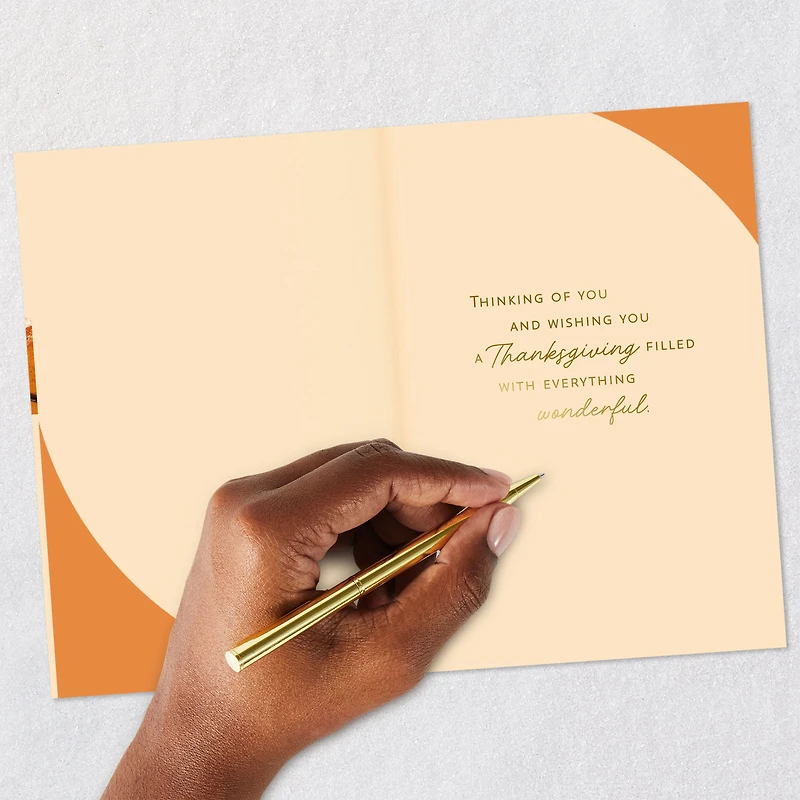 THINKING OF YOU
AND WISHING YOU
A Thanksgiving FILLED
WITH EVERYTHING
wonderful.